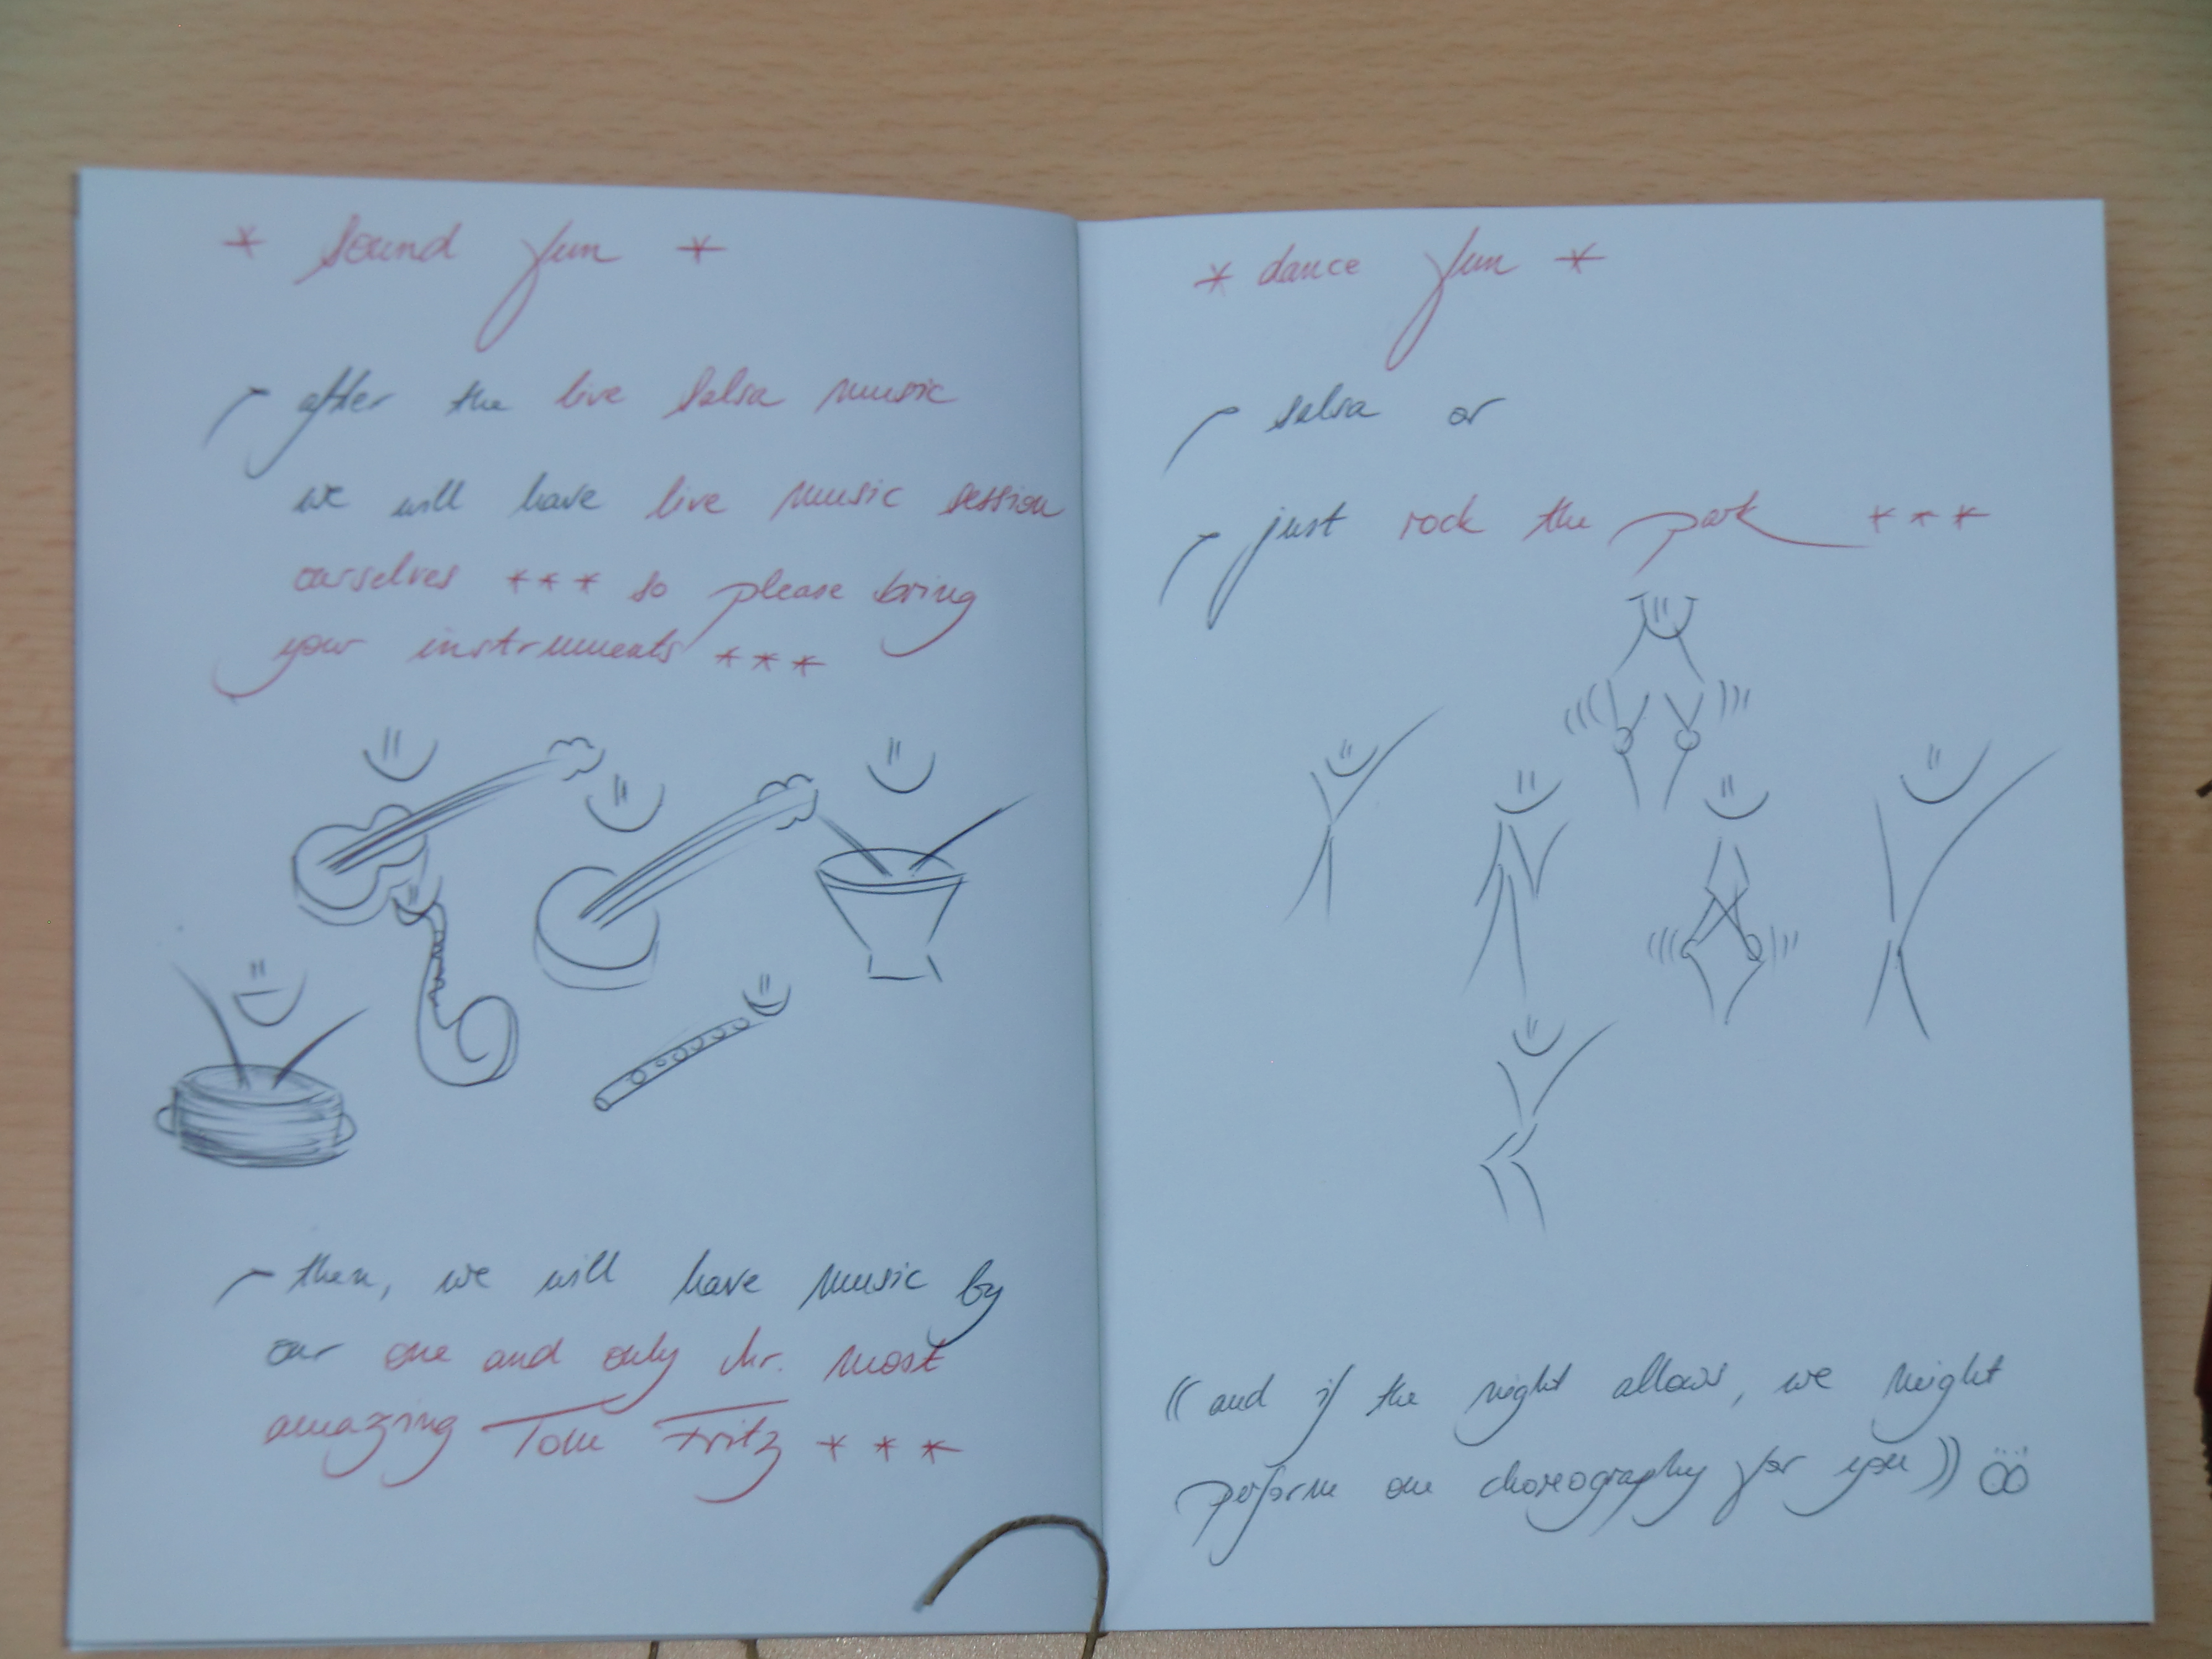 * sound fun *
after the live salsa music
we will have live music session
ourselves *** so please bring
your instruments ***
then, we will have music by
our one and only Mr. most
amazing Tom Fritz ***
* dance fun *
salsa or
just rock the park ***
((and if the night allows, we might
perform one choreography for you))